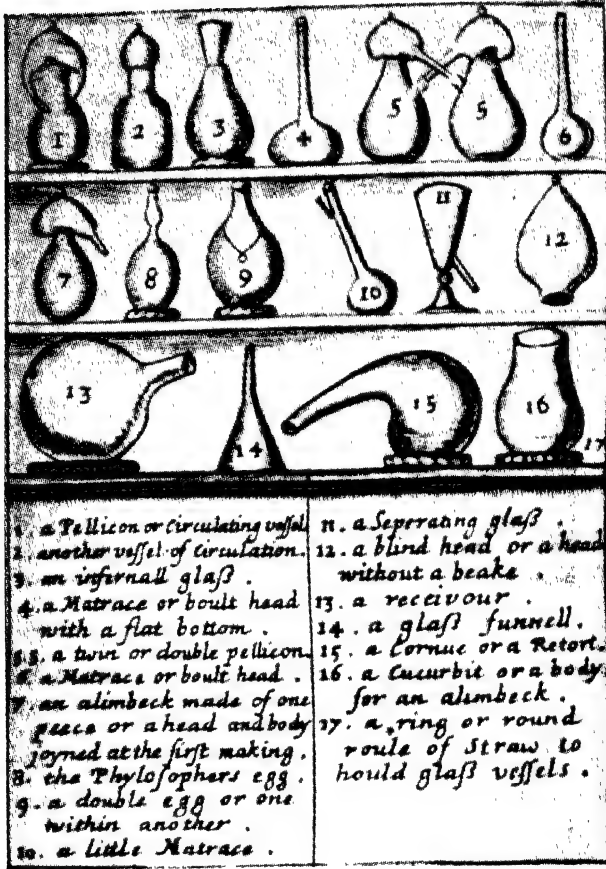 1 2 3 4 5 5 6
7 8 9 10 11 12
13 14 15 16 17
1. a Pellicon or Circulating veſſel
2 another veſſel of Circulation.
3. an infirnall glaß.
4. a Matrace or boult head
with a flat bottom.
5.5. a twin or double pellicon.
6. a Matrace or boult head.
7. an alimbeck made of one
peece or a head and body
joyned at the firſt making.
8. the Phyloſophers egg.
9. a double egg or one
within another.
10. a little Matrace.
11. a Seperating glaß.
12. a blind head or a head
without a beake.
13. a receivour.
14. a glaß funnell.
15. a Cornue or a Retort.
16. a Cucurbit or a body
for an alimbeck.
17. a ring or round
roule of Straw to
hould glaß veſſels.